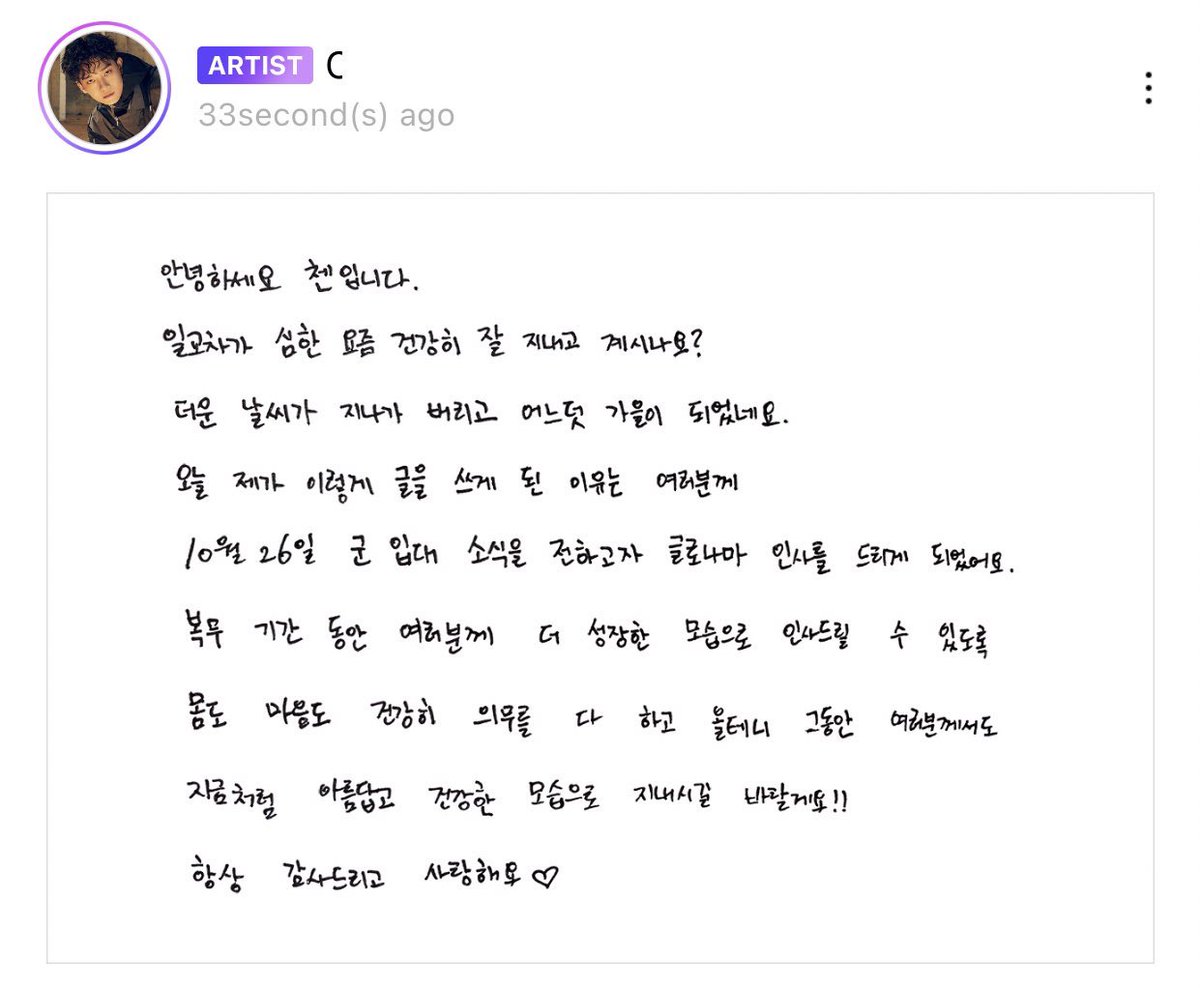 ARTIST C
33second(s) ago
안녕하세요 첸입니다.
일교차가 심한 요즘 건강히 잘 지내고 계시나요?
더운 날씨가 지나가 버리고 어느덧 가을이 되었네요.
오늘 제가 이렇게 글을 쓰게 된 이유는 여러분께
10월 26일 군 입대 소식을 전하고자 글로나마 인사를 드리게 되었어요.
복무 기간 동안 여러분께 더 성장한 모습으로 인사드릴 수 있도록
몸도 마음도 건강히 의무를 다 하고 올테니 그동안 여러분께서도
지금처럼 아름답고 건강한 모습으로 지내시길 바랄게요!!
항상 감사드리고 사랑해요♡